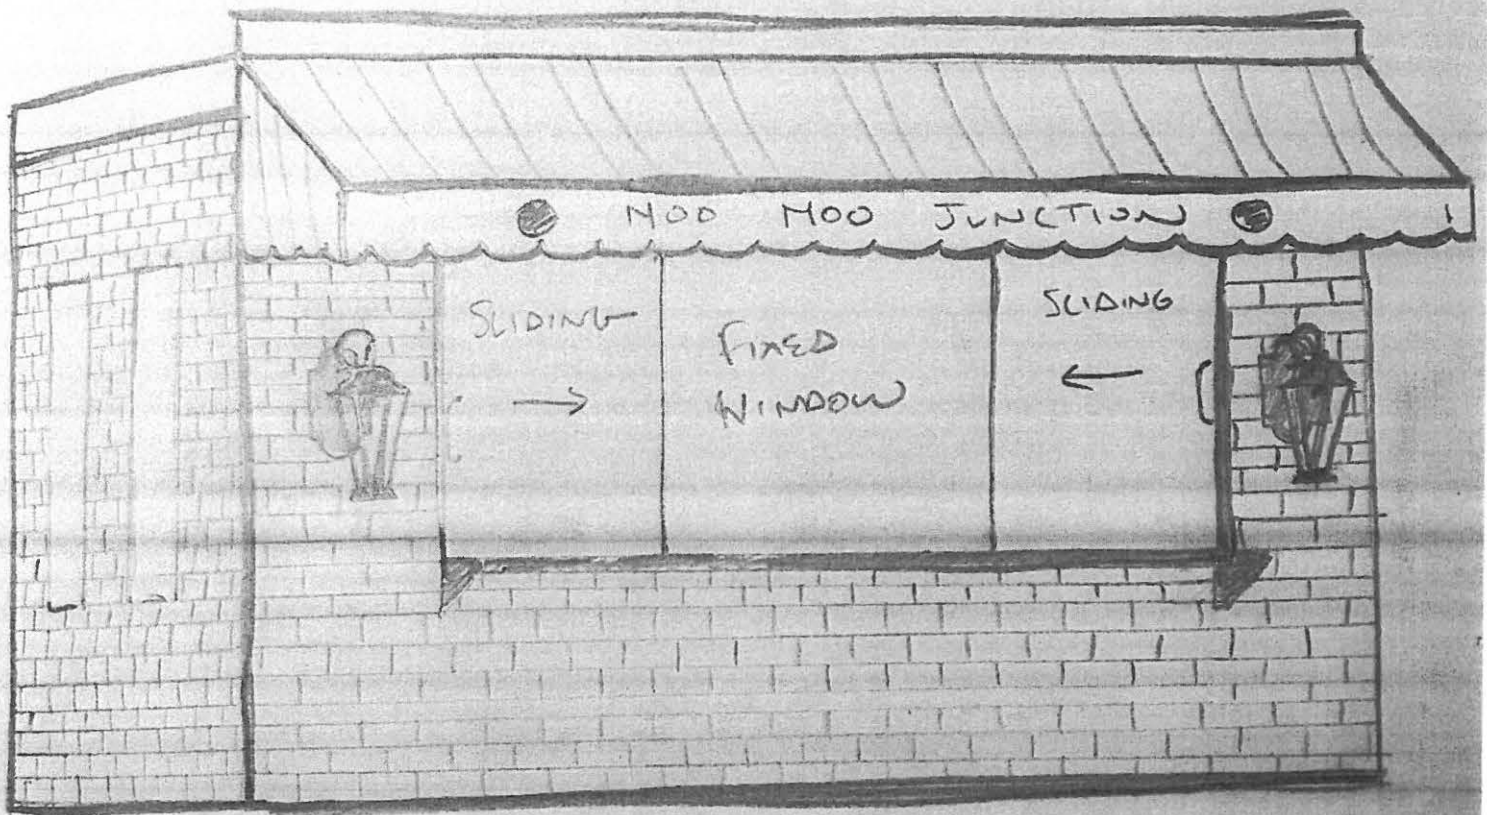 MOO MOO JUNCTION
SLIDING
FIXED
WINDOW
SLIDING